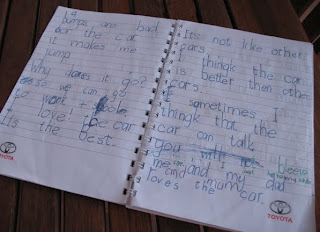 Bumps are bad
for the car
it makes me
jump
Why does it go?
we can go
to work +
I love! the car
It's the best.
TOYOTA
It's not like other
cars.
I thingk the car
is better then other
cars.
I sometimes I
thingk that the
car can talk
you
me and and my dad
loves the mumy car.
TOYOTA